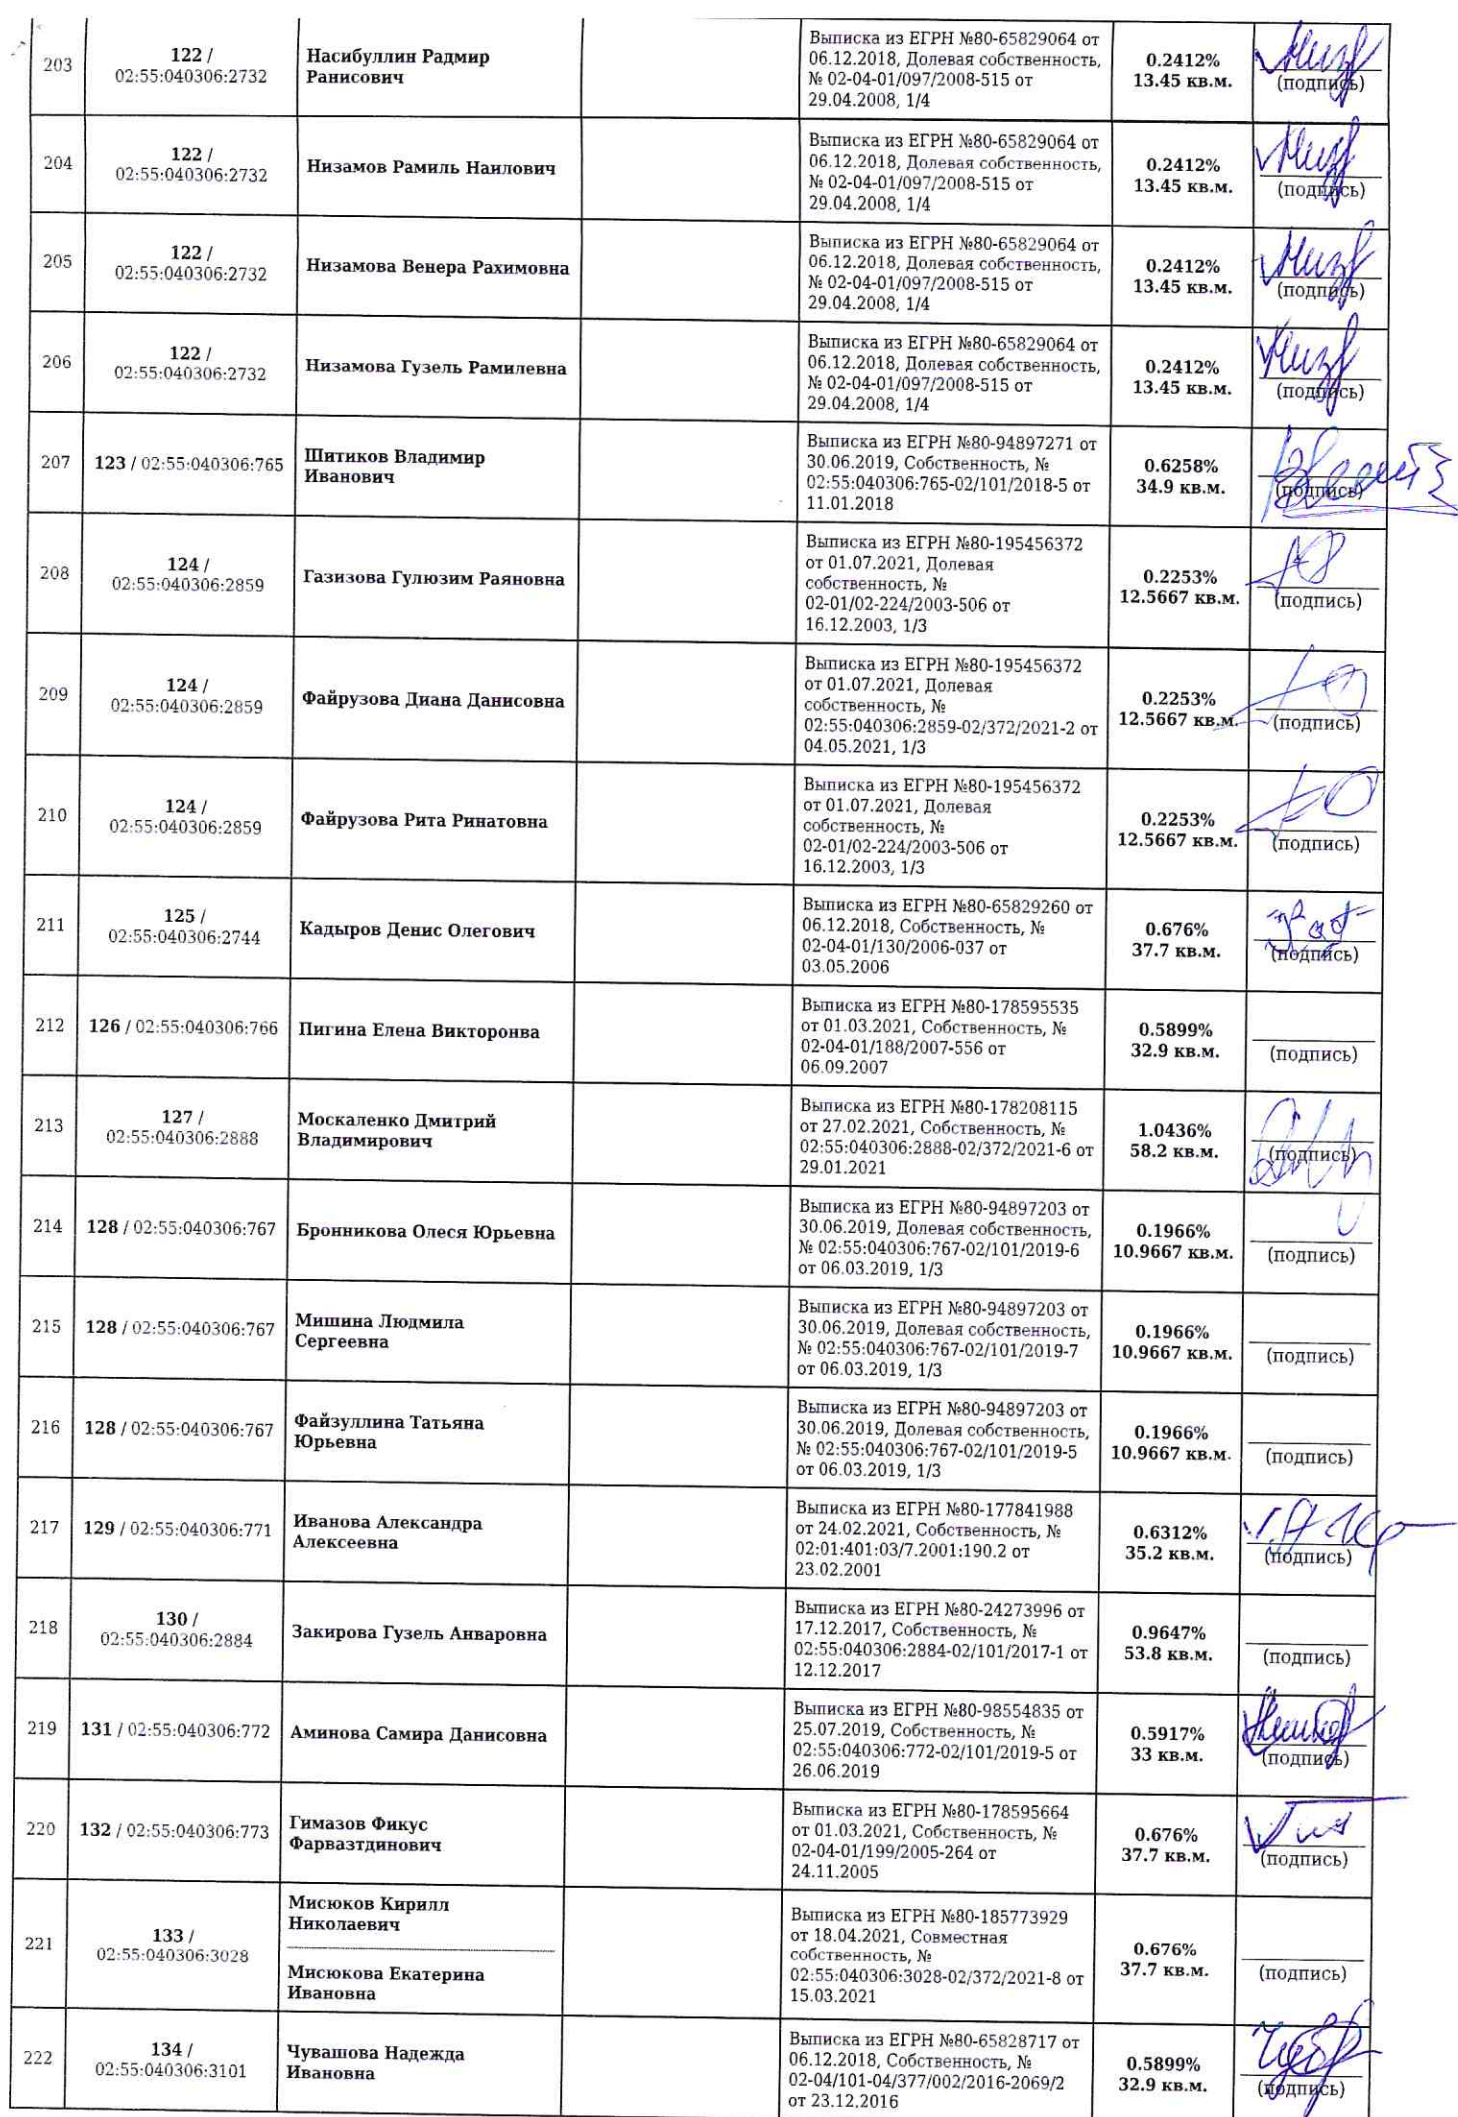 203
122 /
02:55:040306:2732
Насибуллин Радмир
Ранисович
Выписка из ЕГРН №80-65829064 от
06.12.2018, Долевая собственность,
№ 02-04-01/097/2008-515 от
29.04.2008, 1/4
0.2412%
13.45 кв.м.
(подпись)
204
122 /
02:55:040306:2732
Низамов Рамиль Наилович
Выписка из ЕГРН №80-65829064 от
06.12.2018, Долевая собственность,
№ 02-04-01/097/2008-515 от
29.04.2008, 1/4
0.2412%
13.45 кв.м.
(подпись)
205
122 /
02:55:040306:2732
Низамова Венера Рахимовна
Выписка из ЕГРН №80-65829064 от
06.12.2018, Долевая собственность,
№ 02-04-01/097/2008-515 от
29.04.2008, 1/4
0.2412%
13.45 кв.м.
(подпись)
206
122 /
02:55:040306:2732
Низамова Гузель Рамилевна
Выписка из ЕГРН №80-65829064 от
06.12.2018, Долевая собственность,
№ 02-04-01/097/2008-515 от
29.04.2008, 1/4
0.2412%
13.45 кв.м.
(подпись)
207
123 / 02:55:040306:765
Шитиков Владимир
Иванович
Выписка из ЕГРН №80-94897271 от
30.06.2019, Собственность, №
02:55:040306:765-02/101/2018-5 от
11.01.2018
0.6258%
34.9 кв.м.
(подпись)
208
124 /
02:55:040306:2859
Газизова Гулюзим Раяновна
Выписка из ЕГРН №80-195456372
от 01.07.2021, Долевая
собственность, №
02-01/02-224/2003-506 от
16.12.2003, 1/3
0.2253%
12.5667 кв.м.
(подпись)
209
124 /
02:55:040306:2859
Файрузова Диана Данисовна
Выписка из ЕГРН №80-195456372
от 01.07.2021, Долевая
собственность, №
02:55:040306:2859-02/372/2021-2 от
04.05.2021, 1/3
0.2253%
12.5667 кв.м.
(подпись)
210
124 /
02:55:040306:2859
Файрузова Рита Ринатовна
Выписка из ЕГРН №80-195456372
от 01.07.2021, Долевая
собственность, №
02-01/02-224/2003-506 от
16.12.2003, 1/3
0.2253%
12.5667 кв.м.
(подпись)
211
125 /
02:55:040306:2744
Кадыров Денис Олегович
Выписка из ЕГРН №80-65829260 от
06.12.2018, Собственность, №
02-04-01/130/2006-037 от
03.05.2006
0.676%
37.7 кв.м.
(подпись)
212
126 / 02:55:040306:766
Пигина Елена Викторонва
Выписка из ЕГРН №80-178595535
от 01.03.2021, Собственность, №
02-04-01/188/2007-556 от
06.09.2007
0.5899%
32.9 кв.м.
(подпись)
213
127 /
02:55:040306:2888
Москаленко Дмитрий
Владимирович
Выписка из ЕГРН №80-178208115
от 27.02.2021, Собственность, №
02:55:040306:2888-02/372/2021-6 от
29.01.2021
1.0436%
58.2 кв.м.
(подпись)
214
128 / 02:55:040306:767
Бронникова Олеся Юрьевна
Выписка из ЕГРН №80-94897203 от
30.06.2019, Долевая собственность,
№ 02:55:040306:767-02/101/2019-6
от 06.03.2019, 1/3
0.1966%
10.9667 кв.м.
(подпись)
215
128 / 02:55:040306:767
Мишина Людмила
Сергеевна
Выписка из ЕГРН №80-94897203 от
30.06.2019, Долевая собственность,
№ 02:55:040306:767-02/101/2019-7
от 06.03.2019, 1/3
0.1966%
10.9667 кв.м.
(подпись)
216
128 / 02:55:040306:767
Файзуллина Татьяна
Юрьевна
Выписка из ЕГРН №80-94897203 от
30.06.2019, Долевая собственность,
№ 02:55:040306:767-02/101/2019-5
от 06.03.2019, 1/3
0.1966%
10.9667 кв.м.
(подпись)
217
129 / 02:55:040306:771
Иванова Александра
Алексеевна
Выписка из ЕГРН №80-177841988
от 24.02.2021, Собственность, №
02:01:401:03/7.2001:190.2 от
23.02.2001
0.6312%
35.2 кв.м.
(подпись)
218
130 /
02:55:040306:2884
Закирова Гузель Анваровна
Выписка из ЕГРН №80-24273996 от
17.12.2017, Собственность, №
02:55:040306:2884-02/101/2017-1 от
12.12.2017
0.9647%
53.8 кв.м.
(подпись)
219
131 / 02:55:040306:772
Аминова Самира Данисовна
Выписка из ЕГРН №80-98554835 от
25.07.2019, Собственность, №
02:55:040306:772-02/101/2019-5 от
26.06.2019
0.5917%
33 кв.м.
(подпись)
220
132 / 02:55:040306:773
Гимазов Фикус
Фарвазтдинович
Выписка из ЕГРН №80-178595664
от 01.03.2021, Собственность, №
02-04-01/199/2005-264 от
24.11.2005
0.676%
37.7 кв.м.
(подпись)
221
133 /
02:55:040306:3028
Мисюков Кирилл
Николаевич
Мисюкова Екатерина
Ивановна
Выписка из ЕГРН №80-185773929
от 18.04.2021, Совместная
собственность, №
02:55:040306:3028-02/372/2021-8 от
15.03.2021
0.676%
37.7 кв.м.
(подпись)
222
134 /
02:55:040306:3101
Чувашова Надежда
Ивановна
Выписка из ЕГРН №80-65828717 от
06.12.2018, Собственность, №
02-04/101-04/377/002/2016-2069/2
от 23.12.2016
0.5899%
32.9 кв.м.
(подпись)